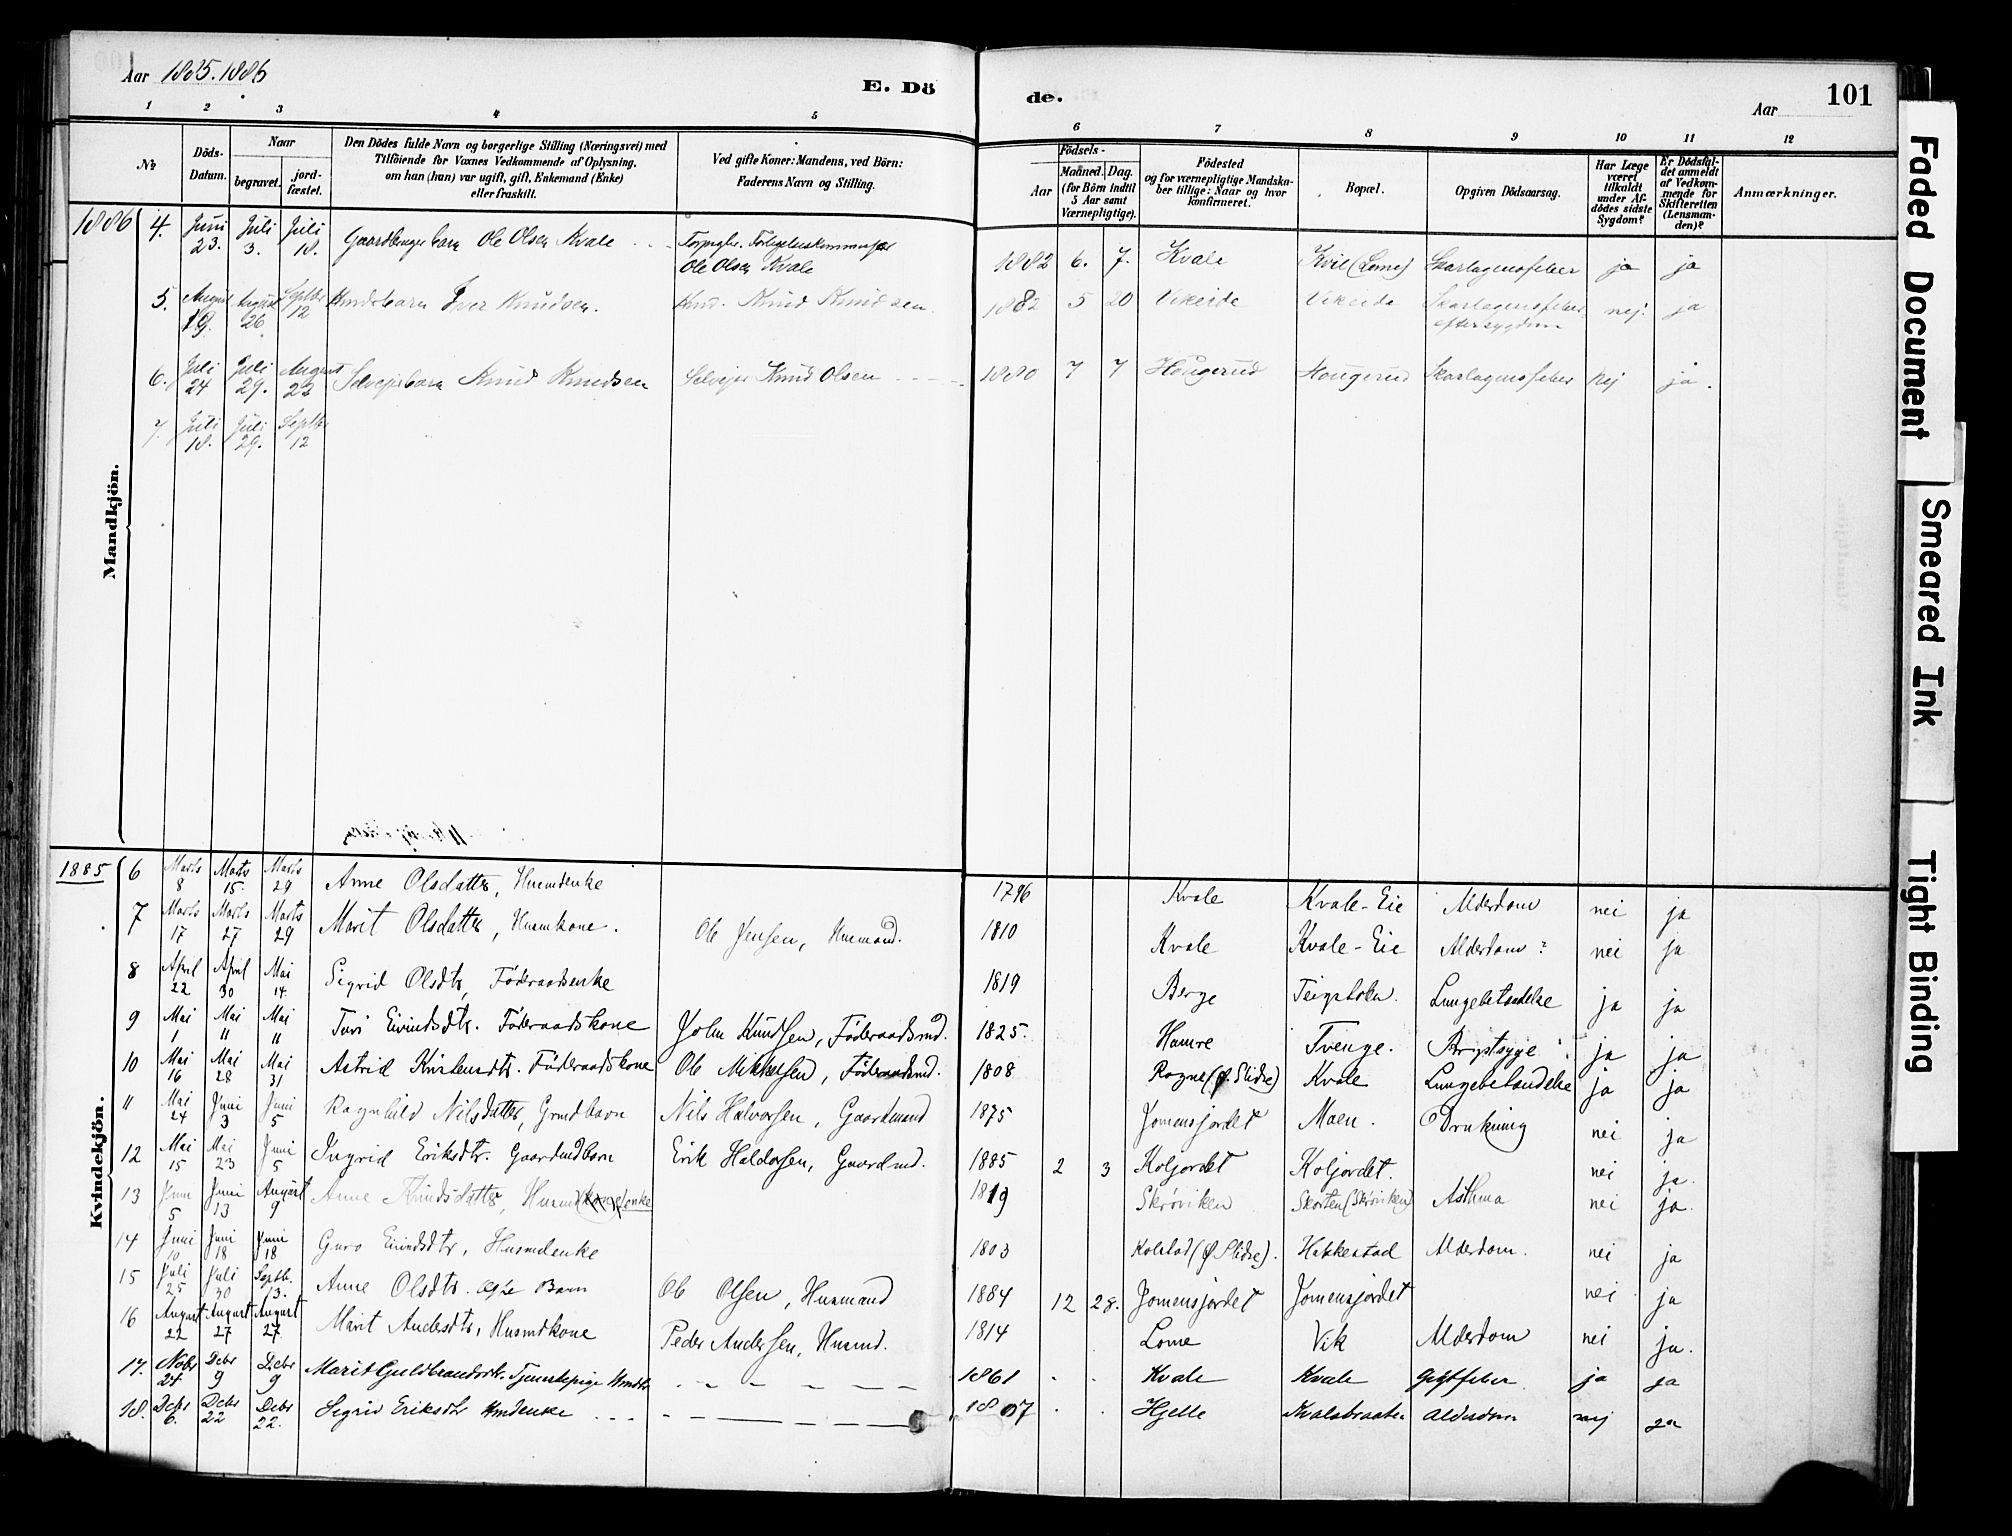 Aar 1885.1886
E. Dö
de.
Aar
101
1 2 3 4 5 6 7 8 9 10 11 12
№
Döds-
Datum.
Naar
begravet.
jord-
fæstet.
Den Dödes fulde Navn og borgerlige Stilling (Næringsvei) med
Tilföiende for Voxnes Vedkommende af Oplysning,
om han (hun) var ugift, gift, Enkemand (Enke)
eller fraskilt.
Ved gifte Koner: Mandens, ved Börn:
Faderens Navn og Stilling.
Födsels-
Aar
Maaned. Dag.
(for Börn indtil
5 Aar samt
Værnepligtige).
Födested
og for værnepligtige Mandska-
ber tillige: Naar og hvor
konfirmeret.
Bopæl.
Opgiven Dödsaarsag.
Har Læge
været
tilkaldt
under Af-
dödes sidste
Sygdom?
Er Dödsfal-
det anmeldt
af Vedkom-
mende for
Skifteretten
(Lensman-
den)?
Anmærkninger.
Mandkjön.
1886 4. Juni 23. Juli 3. Juli 18. Ole Olsen Kvale
Ole Olsen Kvale 1882 6. 7. Kvale Kvil (Lome) Skarlagensfeber ja ja
5. August 19. August 26 Septbr 12 Iver Knudsen. Knud Knudsen. 1882 5 20 Vikeide Vikeide Skarlagensfeber
eftersygdom nej. ja
6. Juli 24 Juli 29. August 22 Selveierbarn Knud Knudsen Selveier Knud Olsen 1880 7 7 Hougerud Hougerud Skarlagensfeber Nej ja.
7. Juli 18. Juli 29. Septbr 12
Kvindekjön.
1885 6 Marts 8 Marts 15 Marts 29 Anne Olsdatter, Husmdenke 1796 Kvale Kvale-Eie Alderdom nei ja
7 Marts 17 Marts 27 Marts 29 Marit Olsdatter, Husmkone. Ole Jensen, Husmand. 1810 Kvale Kvale-Eie Alderdom? nei ja
8 April 22 April 30 Mai 14. Sigrid Olsdtr, Föderaadsenke 1819 Berge Lungebetændelse ja ja
9 Mai 1 Mai 11 Mai 11 Turi Eivindsdtr. Föderaadskone John Knudsen, Föderaadsmd. 1825. Hamre Tvenge. Brystsyge ja ja
10 Mai 16 Mai 28 Mai 31 Astrid Kristensdtr. Föderaadskone Ole Mikkelsen, Föderaadsmd. 1808 Rogne (Ø. Slidre) Kvale Lungebetændelse ja ja
11 Mai 24 Juni 3 Juni 5 Ragnhild Nilsdatter, Grmdbarn Nils Halvorsen, Gaardmand 1875 Jomensjordet Moen. Drukning nei ja
12 Mai 15 Mai 23 Juni 5 Ingrid Eriksdtr. Gaardmdbarn Erik Haldorsen, Gaardmd. 1885 2 3 Koljordet Koljordet. nei ja.
13 Juni 5 Juni 13 August 9 Anne Knudsdatter, Husmdenke 1819 Skrøviken Skorten (Skrøviken) Asthma nei ja.
14 Juni 10 Juni 18 Juni 18 Guro Eivindsdtr, Husmdenke 1803 Kolstad (Ø. Slidre). Hakkestad Alderdom. nei ja
15 Juli 25 Juli 30 Septb. 13. Anne Olsdtr. Barn Ole Olsen, Husmand 1884 12 28. Jomensjordet Jomensjordet nei ja
16 August 22 August 27 August 27. Marit Andersdtr, Husmdkone Peder Andersen, Husmd. 1814 Lome Vik Alderdom nei ja.
17. Novbr 24 Debr 9 Debr 9 Marit Guldbrandsdtr. Tjenestepige 1861 Kvale Kvale Gigtfeber ja ja
18. Debr 6. Debr 22 Debr 22. Sigrid Eriksdtr Hmdenke 1807 Hjelle Kvalebraaten Alderdom nej ja
Faded Document
Smeared Ink
Tight Binding